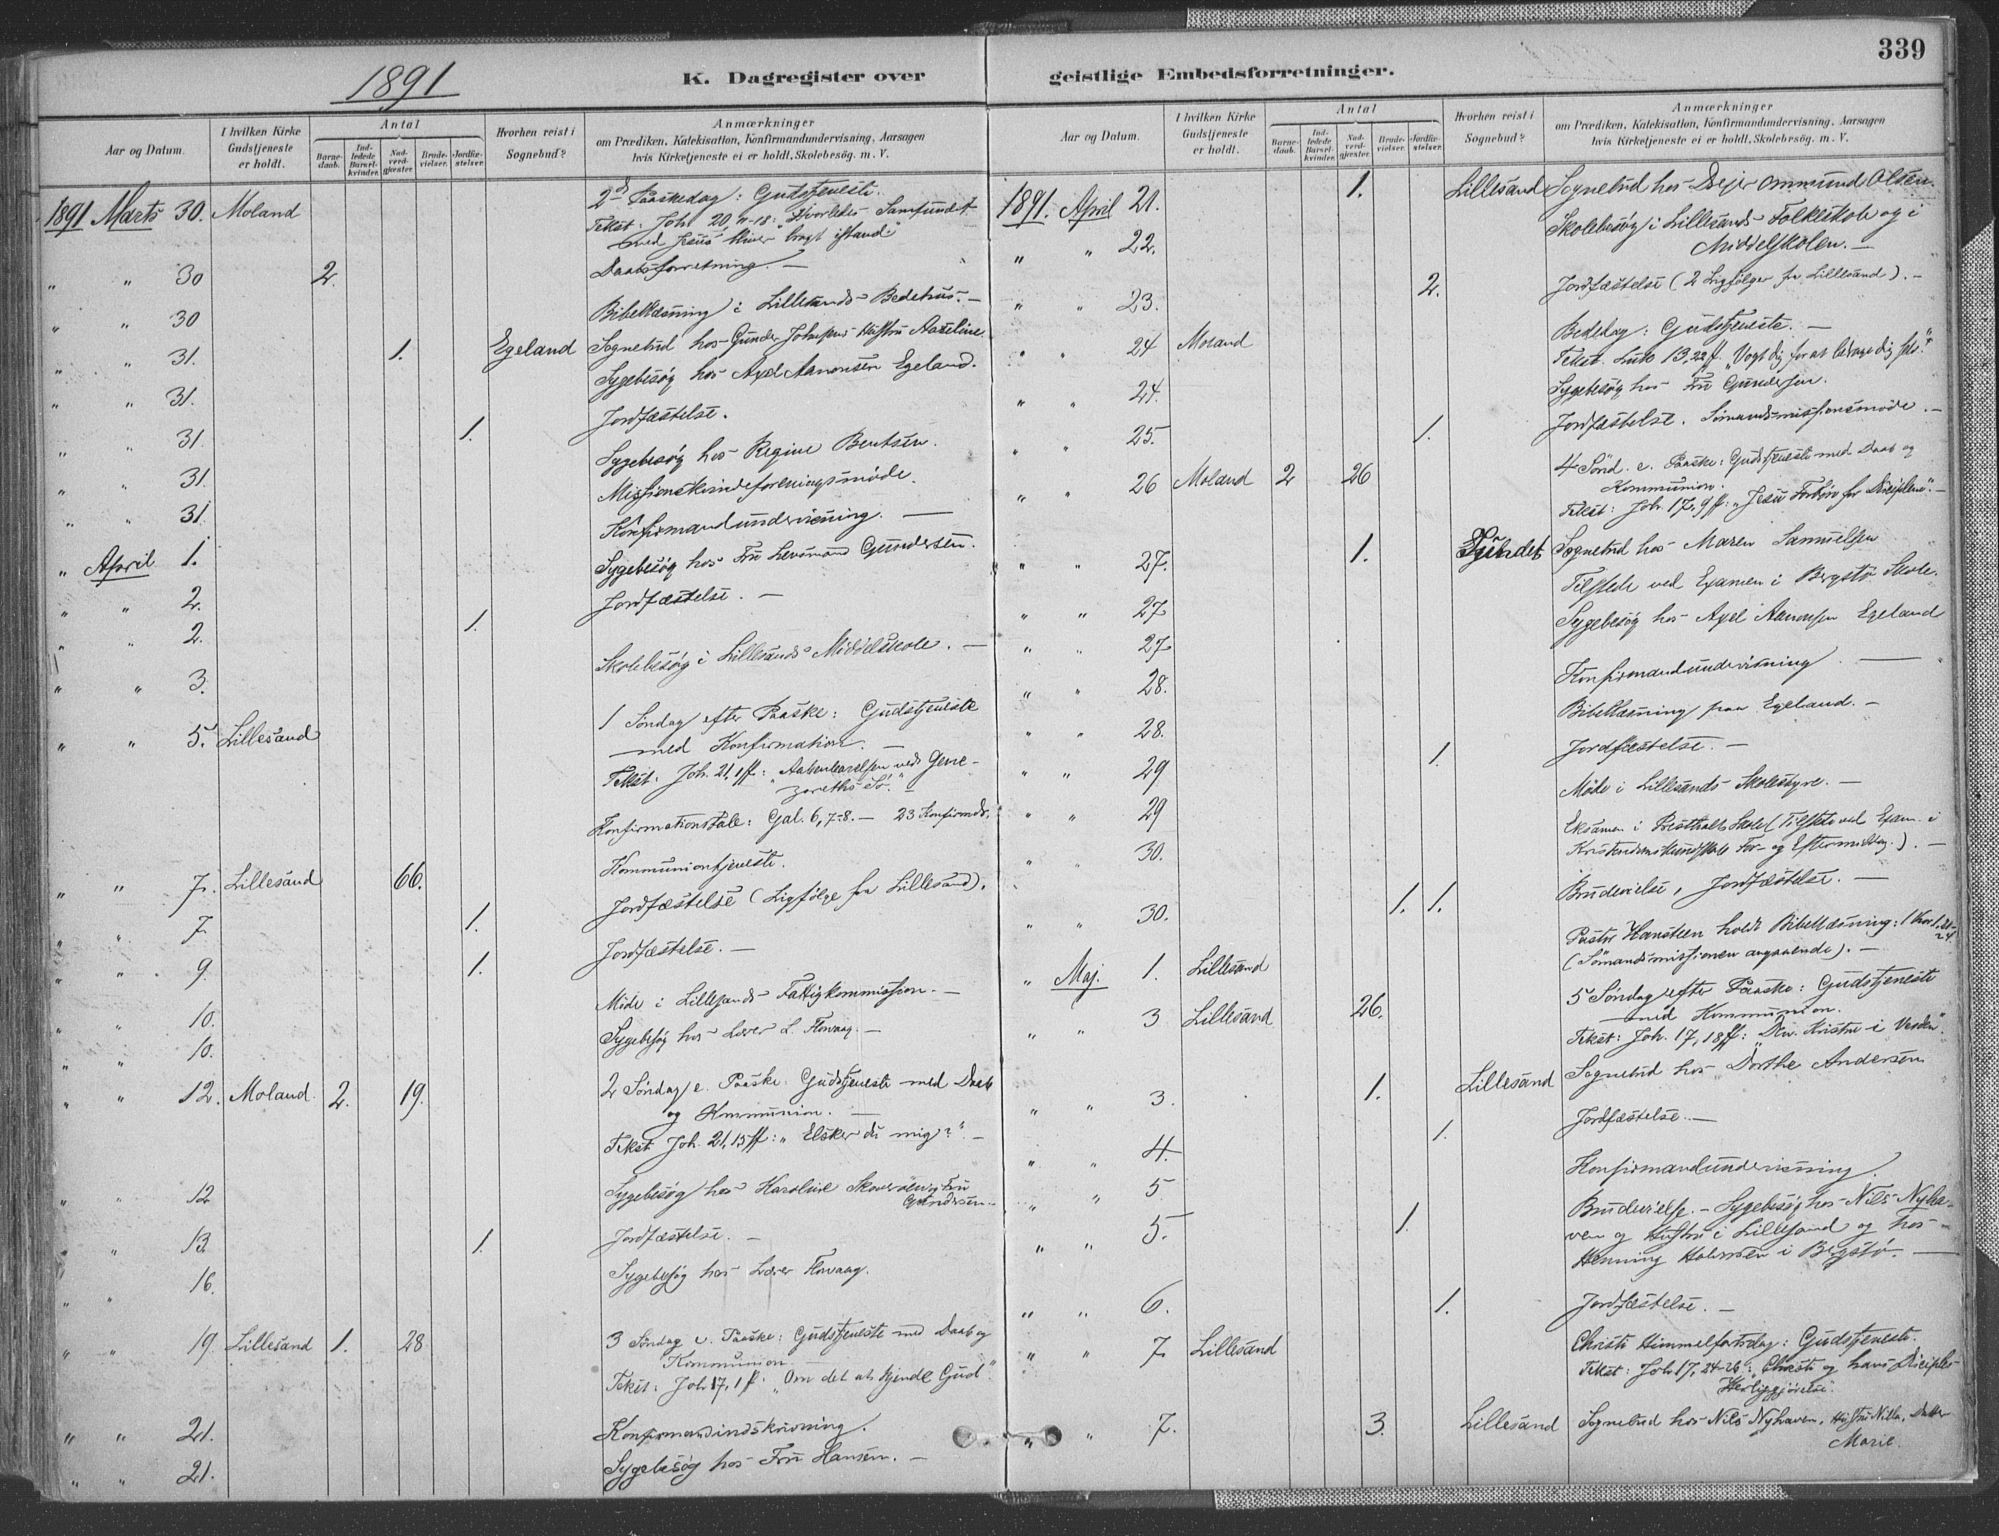 339
1891
K. Dagregister over
Aar og Datum.
I hvilken Kirke Gudstjeneste er holdt.
Antal
Barnedaab.
Indledede Barselkvinder.
Nadverdgjester.
Brudevielser.
Jordfæstelser.
Hvorhen reist i Sognebud?
Anmærkninger
om Prædiken, Katekisation, Konfirmandundervisning, Aarsagen
hvis Kirketjeneste ei er holdt, Skolebesøg. m. V.
1891 Marts 30. Moland 2den Paaskedag: Gudstjeneste.
Tekst: Joh. 20, 11-18: Hvorledes Samfundet
med Jesus bliver bragt istand"
" " 30 2. Daabsforretning. —
" " 30 Bibellæsning i Lillesands Bedehus. —
" " 31. 1. Egeland Sognebud hos Gunder Johnsens Hustru
" " 31. Sygebesøg hos Axel Aanonsen Egeland.
" " 31. 1. Jordfæstelse.
" " 31. Sygebesøg hos Regine Bentsen.
" " 31. Missionskvindeforeningsmøde.
" April 1. Konfirmandundervisning. —
" " 2. Sygebesøg hos Fru Gundersen.
" " 2. 1. Jordfæstelse. —
" " 3. Skolebesøg i Lillesands Middelskole. —
" " 5. Lillesand 1 Søndag efter Paaske: Gudstjeneste
med Konfirmation. —
Tekst: Joh. 21, 1 ff: "Aabenbarelsen ved Gene-
zareths Sø." —
Konfirmationstale: Gal. 6, 7-8. — 23 Konfirmds.
" " 7. Lillesand 66. Kommuniontjeneste.
" " 7. 1. Jordfæstelse (Ligfølge fra Lillesand).
" " 9. 1. Jordfæstelse. —
" " 10. Møde i Lillesands Fattigkommission. —
" " 10. Sygebesøg hos Lærer L. Flovaag. —
" " 12. Moland. 2. 19. 2 Søndag e. Paaske: Gudstjeneste med Daab
og Kommunion. —
Tekst Joh. 21, 15 ff: "Elsker du mig?" —
" " 12 Sygebesøg hos Karoline
" " 13. 1. Jordfæstelse. —
" " 16. Sygebesøg hos Lærer Flovaag.
" " 19. Lillesand 1. 28 3 Søndag e. Paaske: Gudstjeneste med Daab og
Kommunion. —
Tekst: Joh 17, 1 ff. "Om det at kjende Gud".
" " 21. Konfirmandindskrivning.
" " 21. Sygebesøg hos Fru Hansen. —
geistlige Embedsforretninger.
Aar og Datum.
I hvilken Kirke Gudstjeneste er holdt.
Antal
Barnedaab.
Indledede Barselkvinder.
Nadverdgjester.
Brudevielser.
Jordfæstelser.
Hvorhen reist i Sognebud?
Anmærkninger
om Prædiken, Katekisation, Konfirmandundervisning, Aarsagen
hvis Kirketjeneste ei er holdt, Skolebesøg. m. V.
1891. April 21. 1. Lillesand Sognebud hos Ommund Olsen.
" " 22. Skolebesøg i Lillesands Folkeskole og i
Middelskolen. —
" " 23. 2. Jordfæstelse (2 Ligfølger fra Lillesand). —
" " 24 Moland Bededag: Gudstjeneste. —
Tekst. Luk 13, 22 ff. "Vogt dig for at bedrage dig selv."
" " 24. Sygebesøg hos Fru Gundersen.
" " 25. 1. Jordfæstelse. Sømandsmissionsmøde. —
" " 26 Moland 2 26 4 Sønd. e. Paaske: Gudstjeneste med Daab og
Kommunion.
Tekst: Joh. 17, 9 ff: "Jesu Forbøn for Disciplene". —
" " 27. 1. Sognebud hos Maren Samuelsen
" " 27 Tilstede ved Examen i Bergstø Skole.
" " 27 Sygebesøg hos Axel Aanonsen Egeland
" " 28. Konfirmandundervisning. —
" " 28. Bibellæsning paa Egeland. —
" " 29 1. Jordfæstelse. —
" " 29 Møde i Lillesands Skolestyre. —
" " 30. Eksamen i Skole (Tilstede ved Exam. i
Kristendomskundskab For- og Eftermiddag). —
" " 30. 1. 1. Brudevielse, Jordfæstelse. —
" Maj. 1. Lillesand Pastor Hansteen holdt Bibellæsning: 1 Kor 1, 21-24.
(Sømandsmissionen angaaende). —
" " 3 Lillesand 26. 5 Søndag efter Paaske: Gudstjeneste
med Kommunion.
Tekst: Joh. 17, 18 ff: Kristne i Verden".
" " 3. 1. Lillesand Sognebud hos Dorthe Andersen
" " 4. 1. Jordfæstelse. —
" " 5 Konfirmandundervisning.
" " 5. 1. Brudevielse. — Sygebesøg hos Nils Nyha-
ven og Hustru i Lillesand og hos
Henning i Bergstø. —
" " 6. 1. Jordfæstelse. —
" " 7. Lillesand Christi Himmelfartsdag: Gudstjeneste.
Tekst: Joh 17, 24-26: "Christi og hans Disciples
Herliggjørelse".
" " 7. 3. Lillesand Sognebud hos Nils Nyhaven, Hustru Nilla, Datter
Marie.